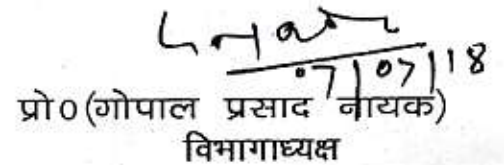 07/07/18
प्रो०(गोपाल प्रसाद नायक)
विभागाध्यक्ष